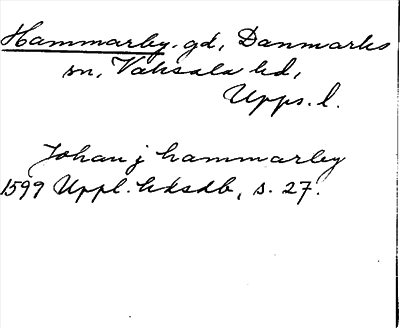 Hammarby, gd, Danmarks
sn, Vaksala hd,
Upps. l.
Johan j hammarby
1599 Uppl. hdsdb, s. 27.